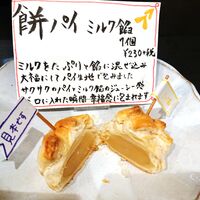 餅パイ ミルク餡
1個
¥230+税
ミルクをたっぷりと餡に混ぜ込み
大福にしてパイ生地で包みました
サクサクのパイとミルク餡のジューシー感
口に入れた瞬間 幸福感に包まれます
見本です